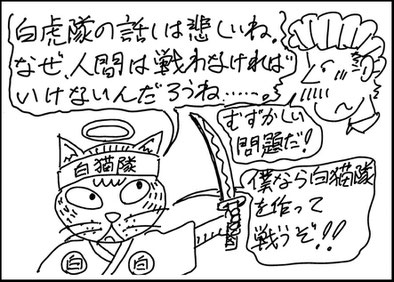 白虎隊の話しは悲しいね。
なぜ、人間は戦わなければ
いけないんだろうね……。
むずかしい
問題だ!
白猫隊
僕なら白猫隊
を作って
戦うぞ!!
白
白